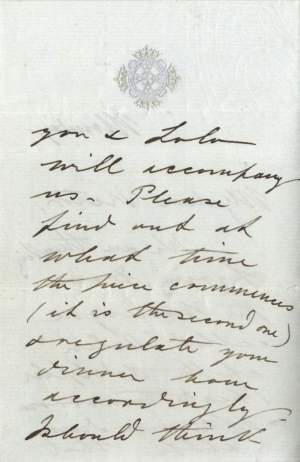 you & Lolo
will accompany
us - Please
find out at
what time
the piece commences
(it is the second one)
& regulate your
dinner hour
accordingly
I should think